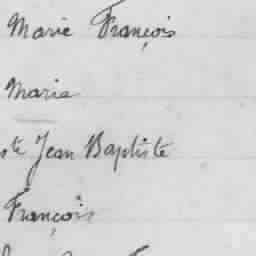 Marie François
Maria
ste Jean Baptiste
François